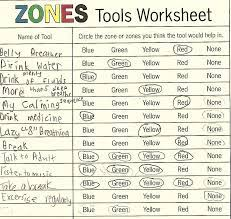 ZONES Tools Worksheet
Name of Tool Circle the zone or zones you think the tool would help in.
Belly Breather Blue Green Yellow Red None
Drink Water Blue Green Yellow Red None
Drink plenty of Fluids Blue Green Yellow Red None
More than deep breaths Blue Green Yellow Red None
My Calming sequence Blue Green Yellow Red None
Drink medicine Blue Green Yellow Red None
Lazy "8" Breathing Blue Green Yellow Red None
Break Blue Green Yellow Red None
Talk to Adult Blue Green Yellow Red None
Taste music Blue Green Yellow Red None
Take a break Blue Green Yellow Red None
Excersise regulary Blue Green Yellow Red None